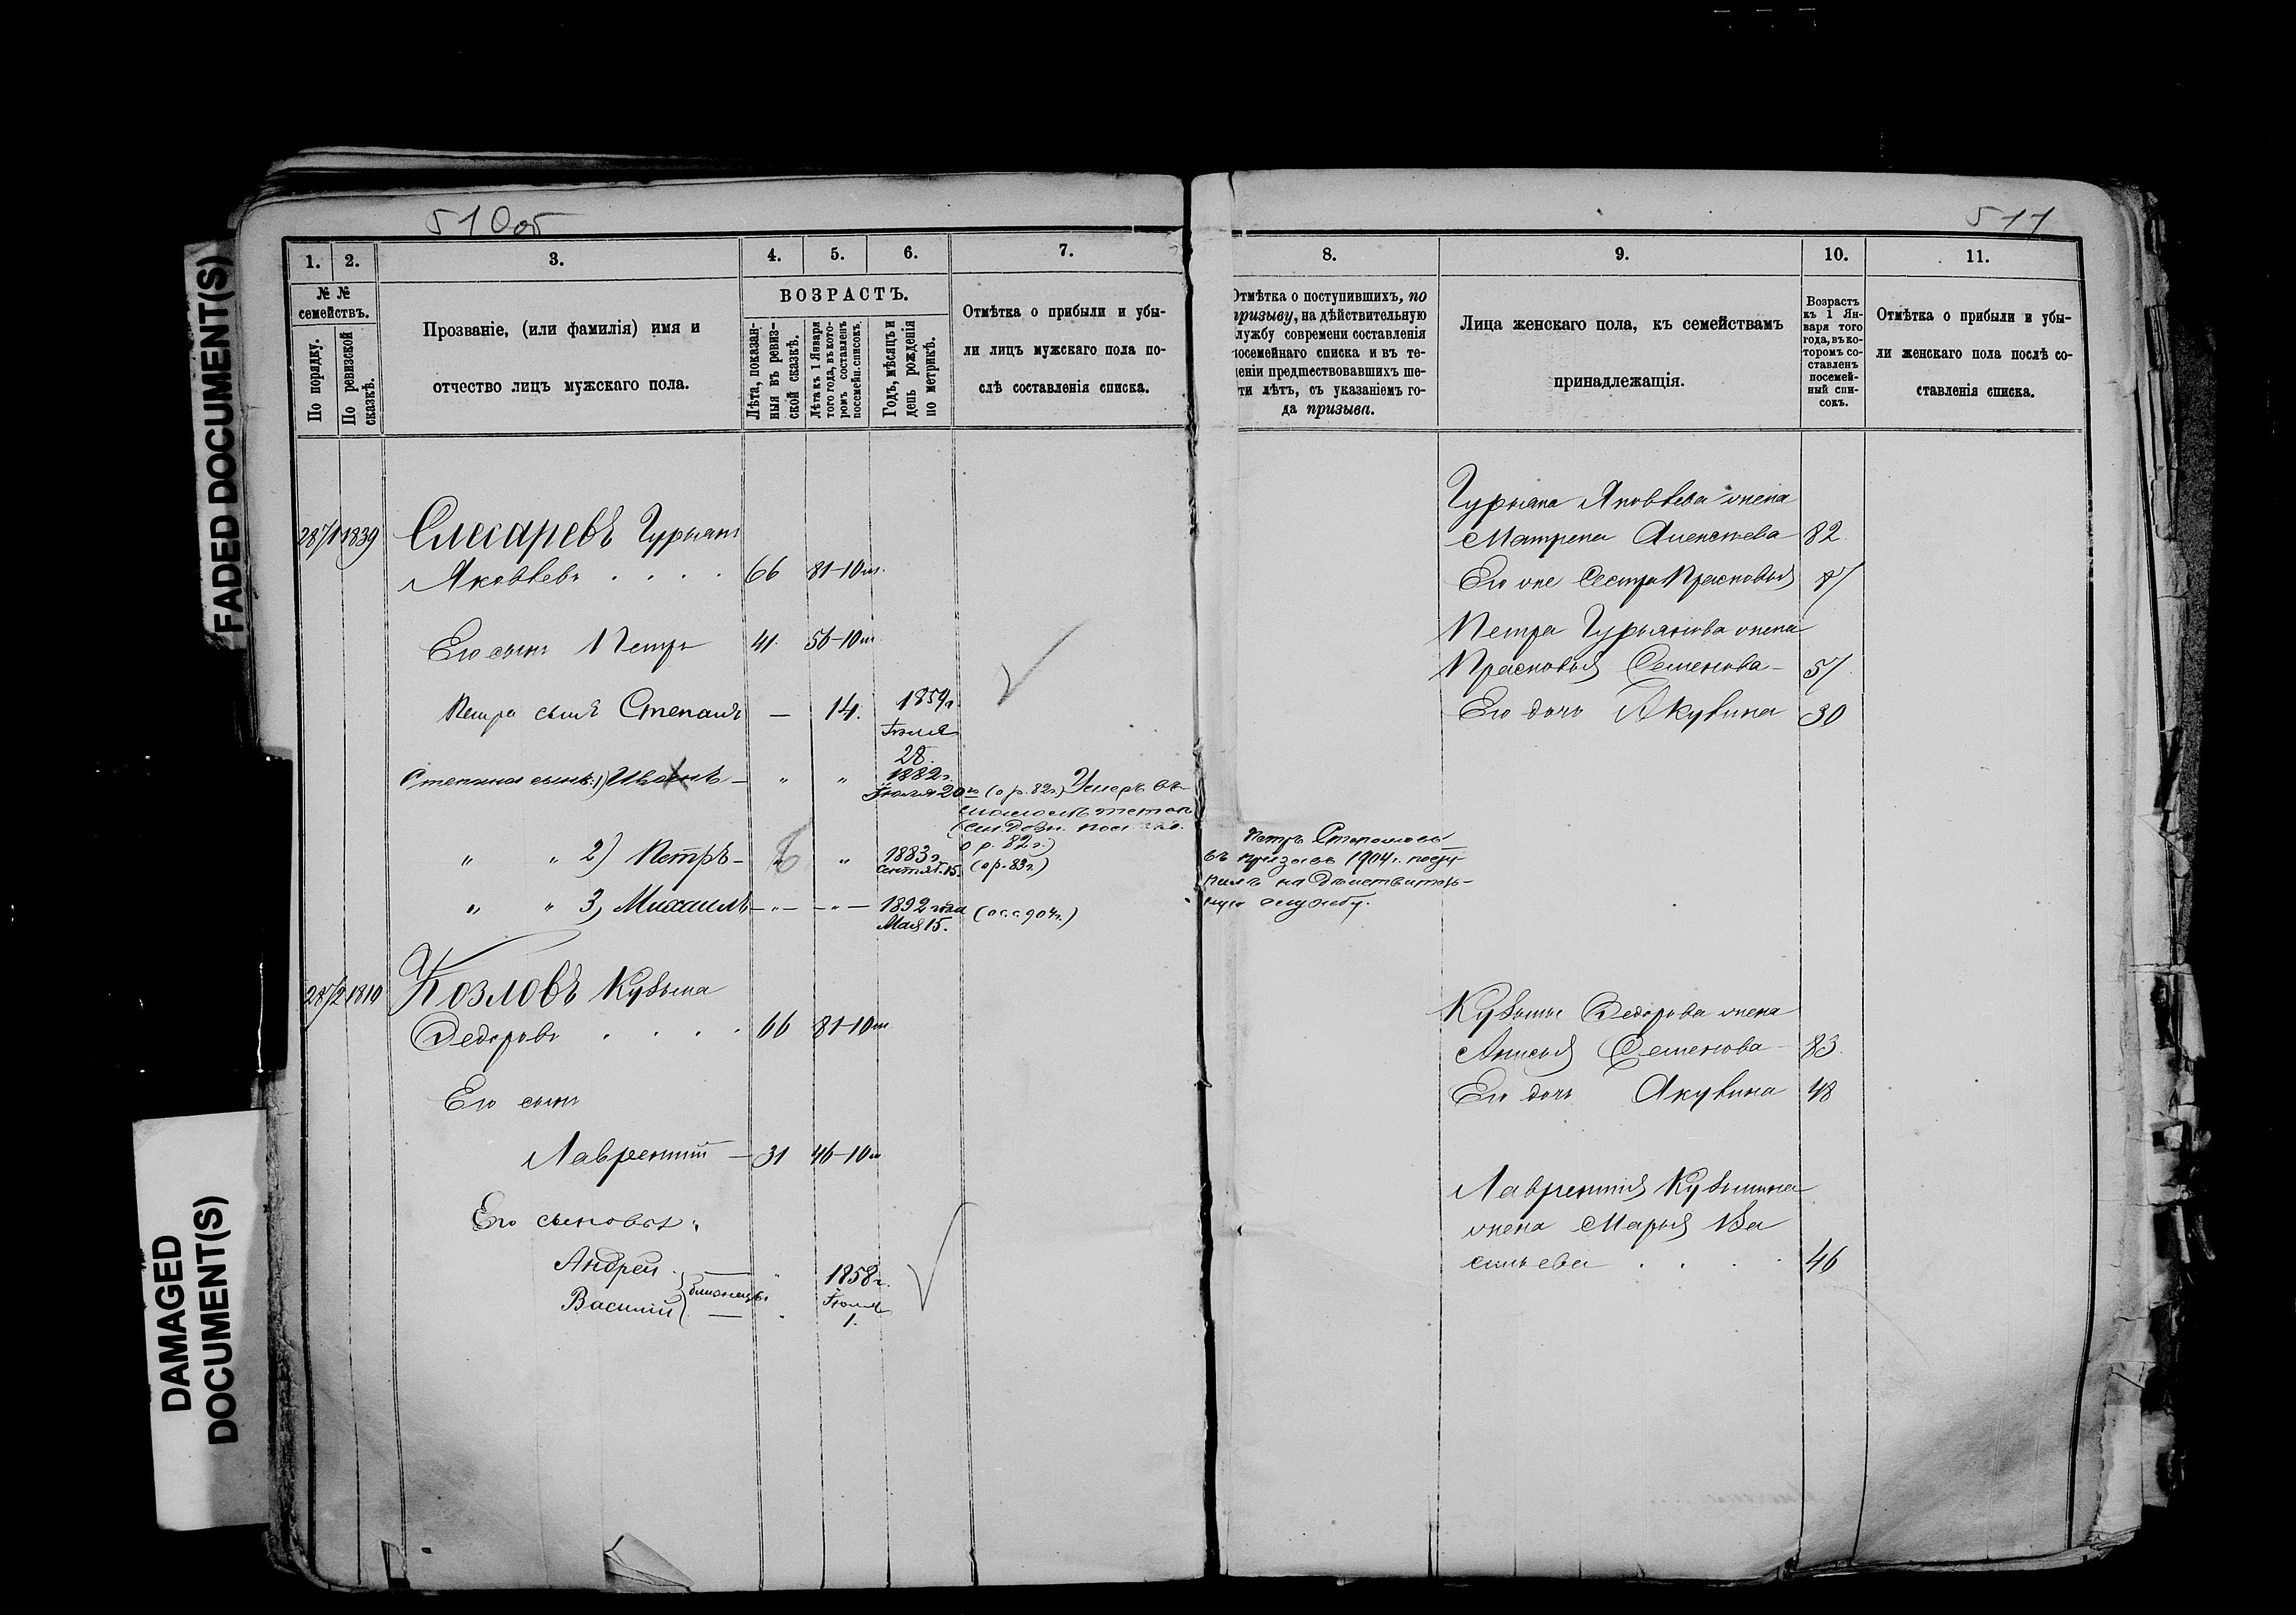 FADED DOCUMENT(S)
DAMAGED
DOCUMENT(S)
510об
1.
2.
3.
4.
5.
6.
7.
№ №
семействъ.
По порядку.
По ревизской
сказкѣ.
Прозваніе, (или фамилія) имя и
отчество лицъ мужскаго пола.
ВОЗРАСТЪ.
Лѣта, показан-
ныя въ ревиз-
ской сказкѣ.
Лѣта къ 1 Января
того года, въ кото-
ромъ составленъ
посемейн. списокъ.
Годъ, мѣсяцъ и
день рожденія
по метрикѣ.
Отмѣтка о прибыли и убы-
ли лицъ мужскаго пола по-
слѣ составленія списка.
1839
Слесаревъ Гурьянъ
Яковлевъ . . . . 66 81-10 м.
Его сынъ Петръ 41. 56-10 м
Петра сынъ Степанъ — 14. 1859 г.
Іюля
28.
Степана сынъ: 1) Иванъ — " " 1882 г.
Іюля 20 (о р. 82 г.) Умеръ въ
о р. 82 г.)
" " 2) Петръ — " 1883 г.
Сентяб. 15. (о р. 83 г.)
" " 3) Михаилъ — " — — " — 1892 года
Мая 15.
28/2 1810 Козловъ Кузьма
Федоровъ . . . . 66 81-10 м
Его сынъ
Лаврентій — 31 46-10 м
Его сыновья:
Андрей
Василій близнецы
1858 г.
Іюля
1.
511
8.
9.
10.
11.
Отмѣтка о поступившихъ, по
призыву, на дѣйствительную
лужбу современи составленія
посемейнаго списка и въ те-
ченіи предшествовавшихъ ше-
ти лѣтъ, съ указаніемъ го-
да призыва.
Лица женскаго пола, къ семействамъ
принадлежащія.
Возрастъ
къ 1 Ян-
варя того
года, въ ко-
торомъ со-
ставленъ
посемей-
ный спи-
сокъ.
Отмѣтка о прибыли и убы-
ли женскаго пола послѣ со-
ставленія списка.
Гурьяна Яковлева жена
Матрена Алексѣева 82
Его же сестра Прасковья
Петра Гурьянова жена
Прасковья Семенова — 57
Его дочь Акулина 30
Петръ Степановъ
въ призывъ 1904 г. посту-
пилъ на дѣйствитель-
ную службу.
Кузьмы Федорова жена
Анисья Семенова — 83.
Его дочь Акулина 48
Лаврентія Кузьмина
жена Марья Ва
сильева . . . . 46